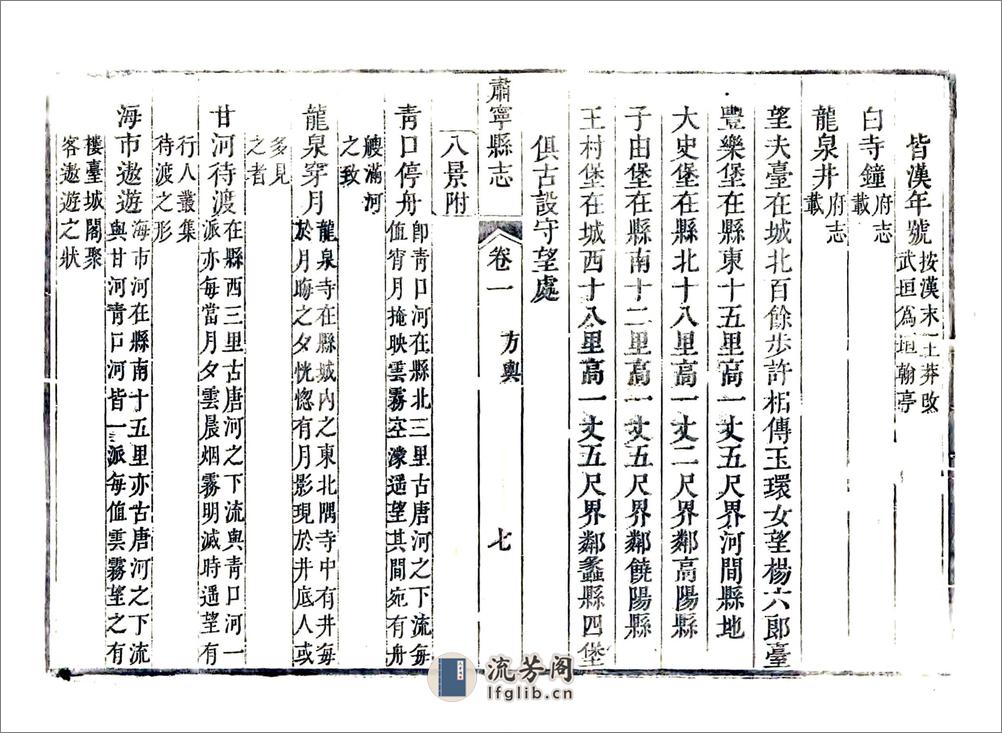 皆漢年號按漢末王莽改
武垣為垣翰亭
白寺鐘府志
載
龍泉井府志
載
望夫臺在城北百餘步許相傳玉環女望楊六郎臺
豐樂堡在縣東十五里高一丈五尺界河間縣地
大史堡在縣北十八里高一丈二尺界鄰高陽縣
子由堡在縣南十二里高一丈五尺界鄰饒陽縣
王村堡在城西十八里高一丈五尺界鄰蠡縣四堡
俱古設守望處
肅寧縣志
卷一
方輿
七
八景附
青口停舟即青口河在縣北三里古唐河之下流每
值宵月掩映雲霧空濛遥望其間宛有舟
艘滿河
之致
龍泉穿月龍泉寺在縣城内之東北隅寺中有井每
於月晦之夕恍惚有月影現於井底人或
多見
之者
甘河待渡在縣西三里古唐河之下流與青口河一
派亦每當月夕雲晨烟霧明滅時遥望有
行人叢集
待渡之形
海市遨遊海市河在縣南十五里亦古唐河之下流
與甘河青口河皆一派每值雲霧望之有
樓臺城閣聚
客遨遊之狀
流芳阁
lfglib.cn